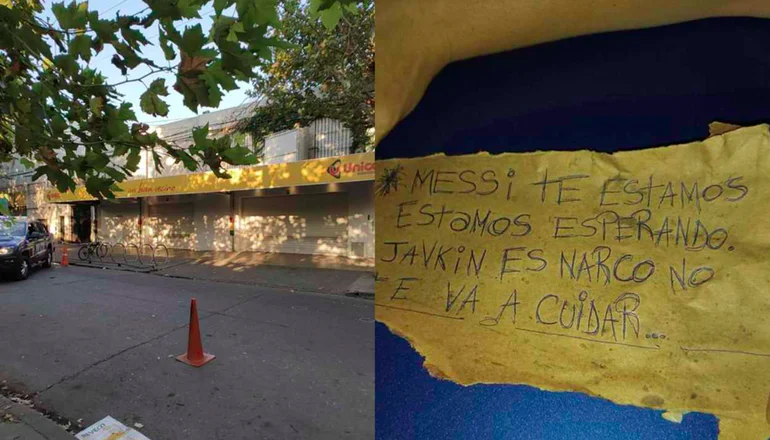 Unico
*MESSi TE ESTAMOS
ESTAMOS ESPERANDO.
JAVKIN ES NARCO NO
TE VA A CUIDAR...